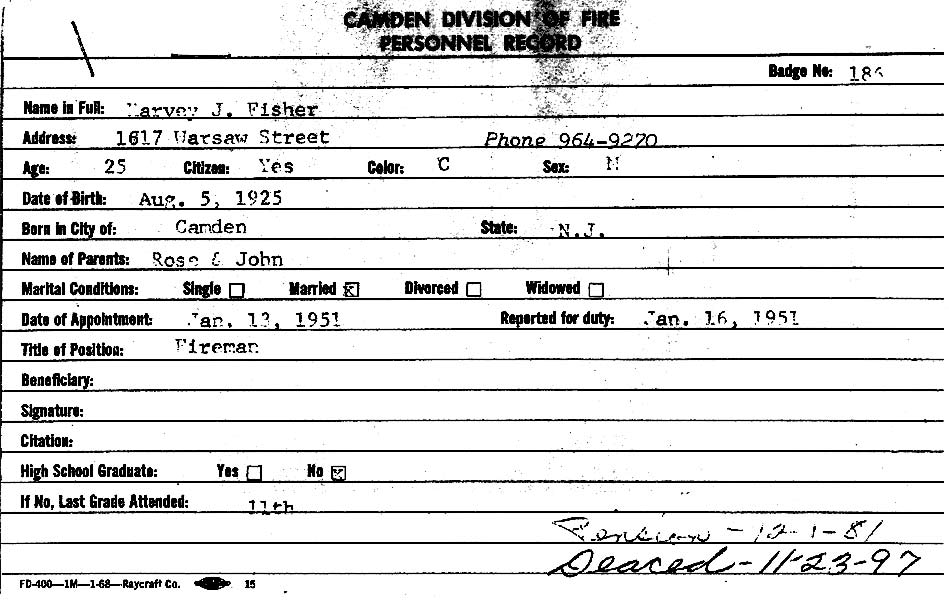 CAMDEN DIVISION OF FIRE
PERSONNEL RECORD
Badge No: 186
Name in Full: Harvey J. Fisher
Address: 1617 Warsaw Street Phone 964-9270
Age: 25 Citizen: Yes Color: C Sex: M
Date of Birth: Aug. 5, 1925
Born in City of: Camden State: N.J.
Name of Parents: Rose & John
Marital Conditions: Single ☐ Married ☒ Divorced ☐ Widowed ☐
Date of Appointment: Jan. 13, 1951 Reported for duty: Jan. 16, 1951
Title of Position: Fireman
Beneficiary:
Signature:
Citation:
High School Graduate: Yes ☐ No ☒
If No, Last Grade Attended: 11th
Pension - 12-1-81
Deaced - 11-23-97
FD-400—1M—1-68—Raycraft Co. 15